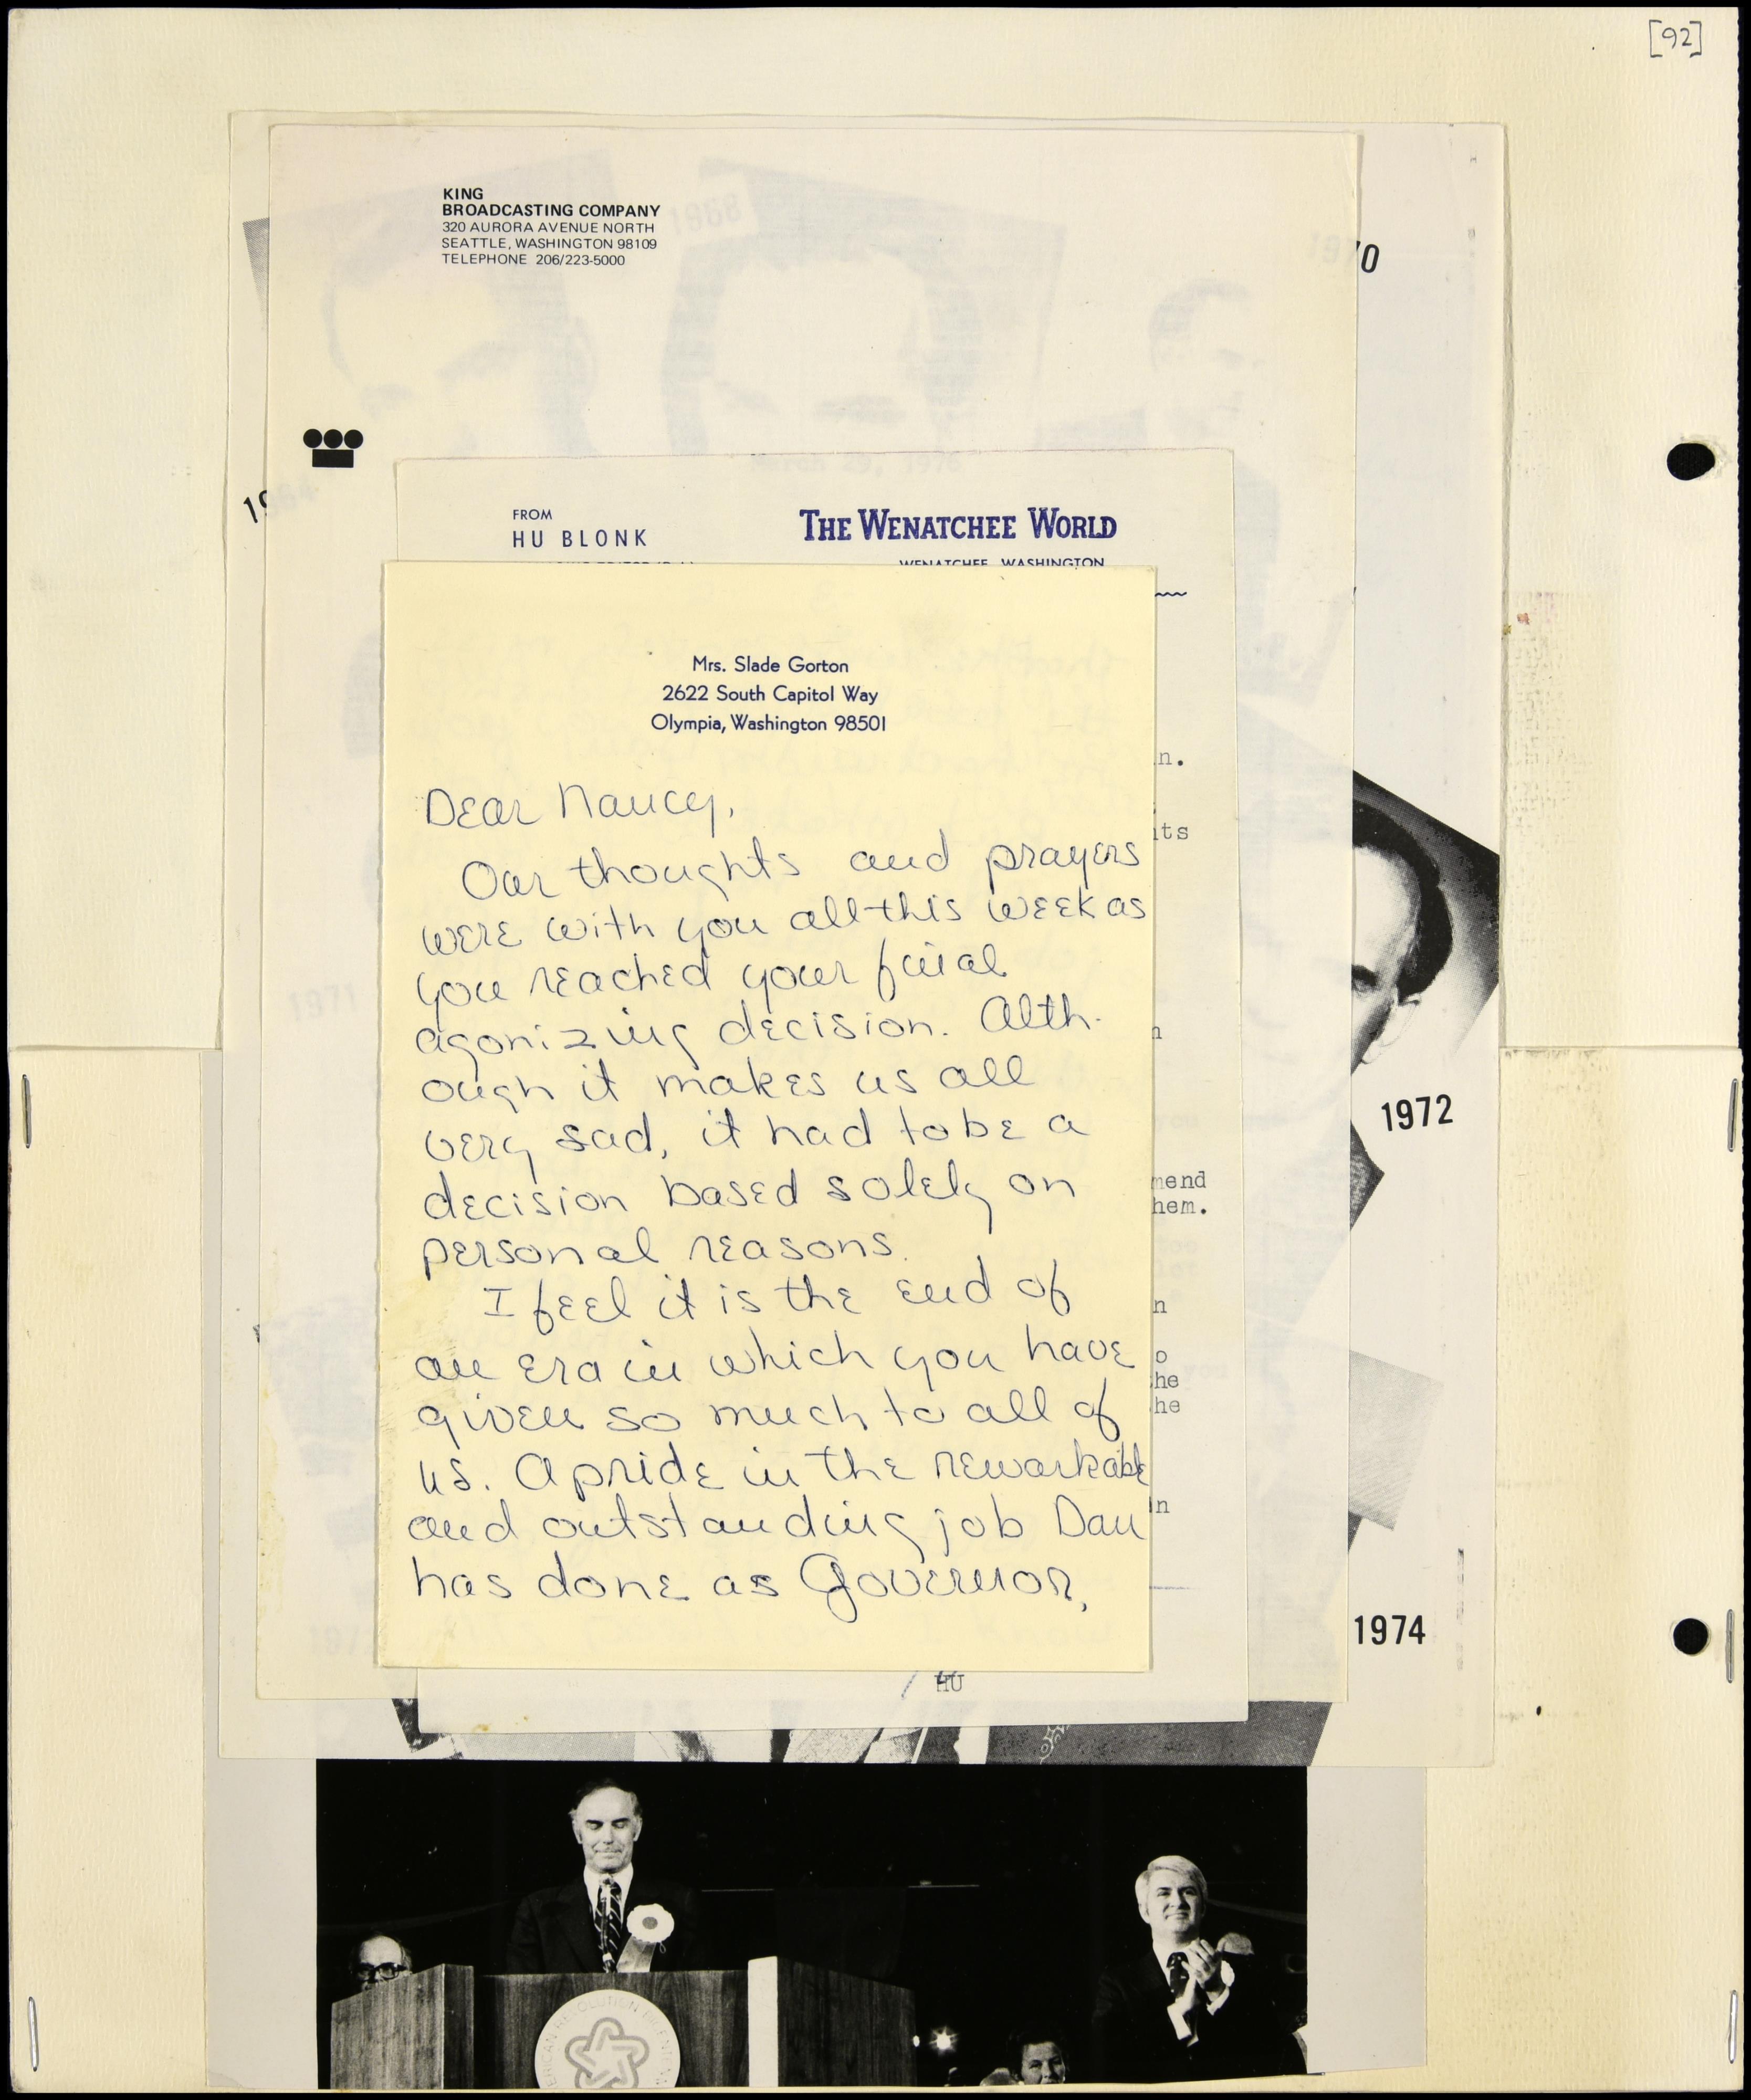 [92]
KING
BROADCASTING COMPANY
320 AURORA AVENUE NORTH
SEATTLE, WASHINGTON 98109
TELEPHONE 206/223-5000
1968
1970
1964
March 29, 1976
FROM
HU BLONK
THE WENATCHEE WORLD
WENATCHEE, WASHINGTON
Mrs. Slade Gorton
2622 South Capitol Way
Olympia, Washington 98501
Dear Nancy,
Our thoughts and prayers
were with you all this week as
you reached your final
agonizing decision. Alth-
ough it makes us all
very sad, it had to be a
decision based solely on
personal reasons.
I feel it is the end of
an era in which you have
given so much to all of
us. A pride in the remarkable
and outstanding job Dan
has done as Governor,
n.
its
n
mend
hem.
n
o
he
he
n
1971
1972
1974
HU